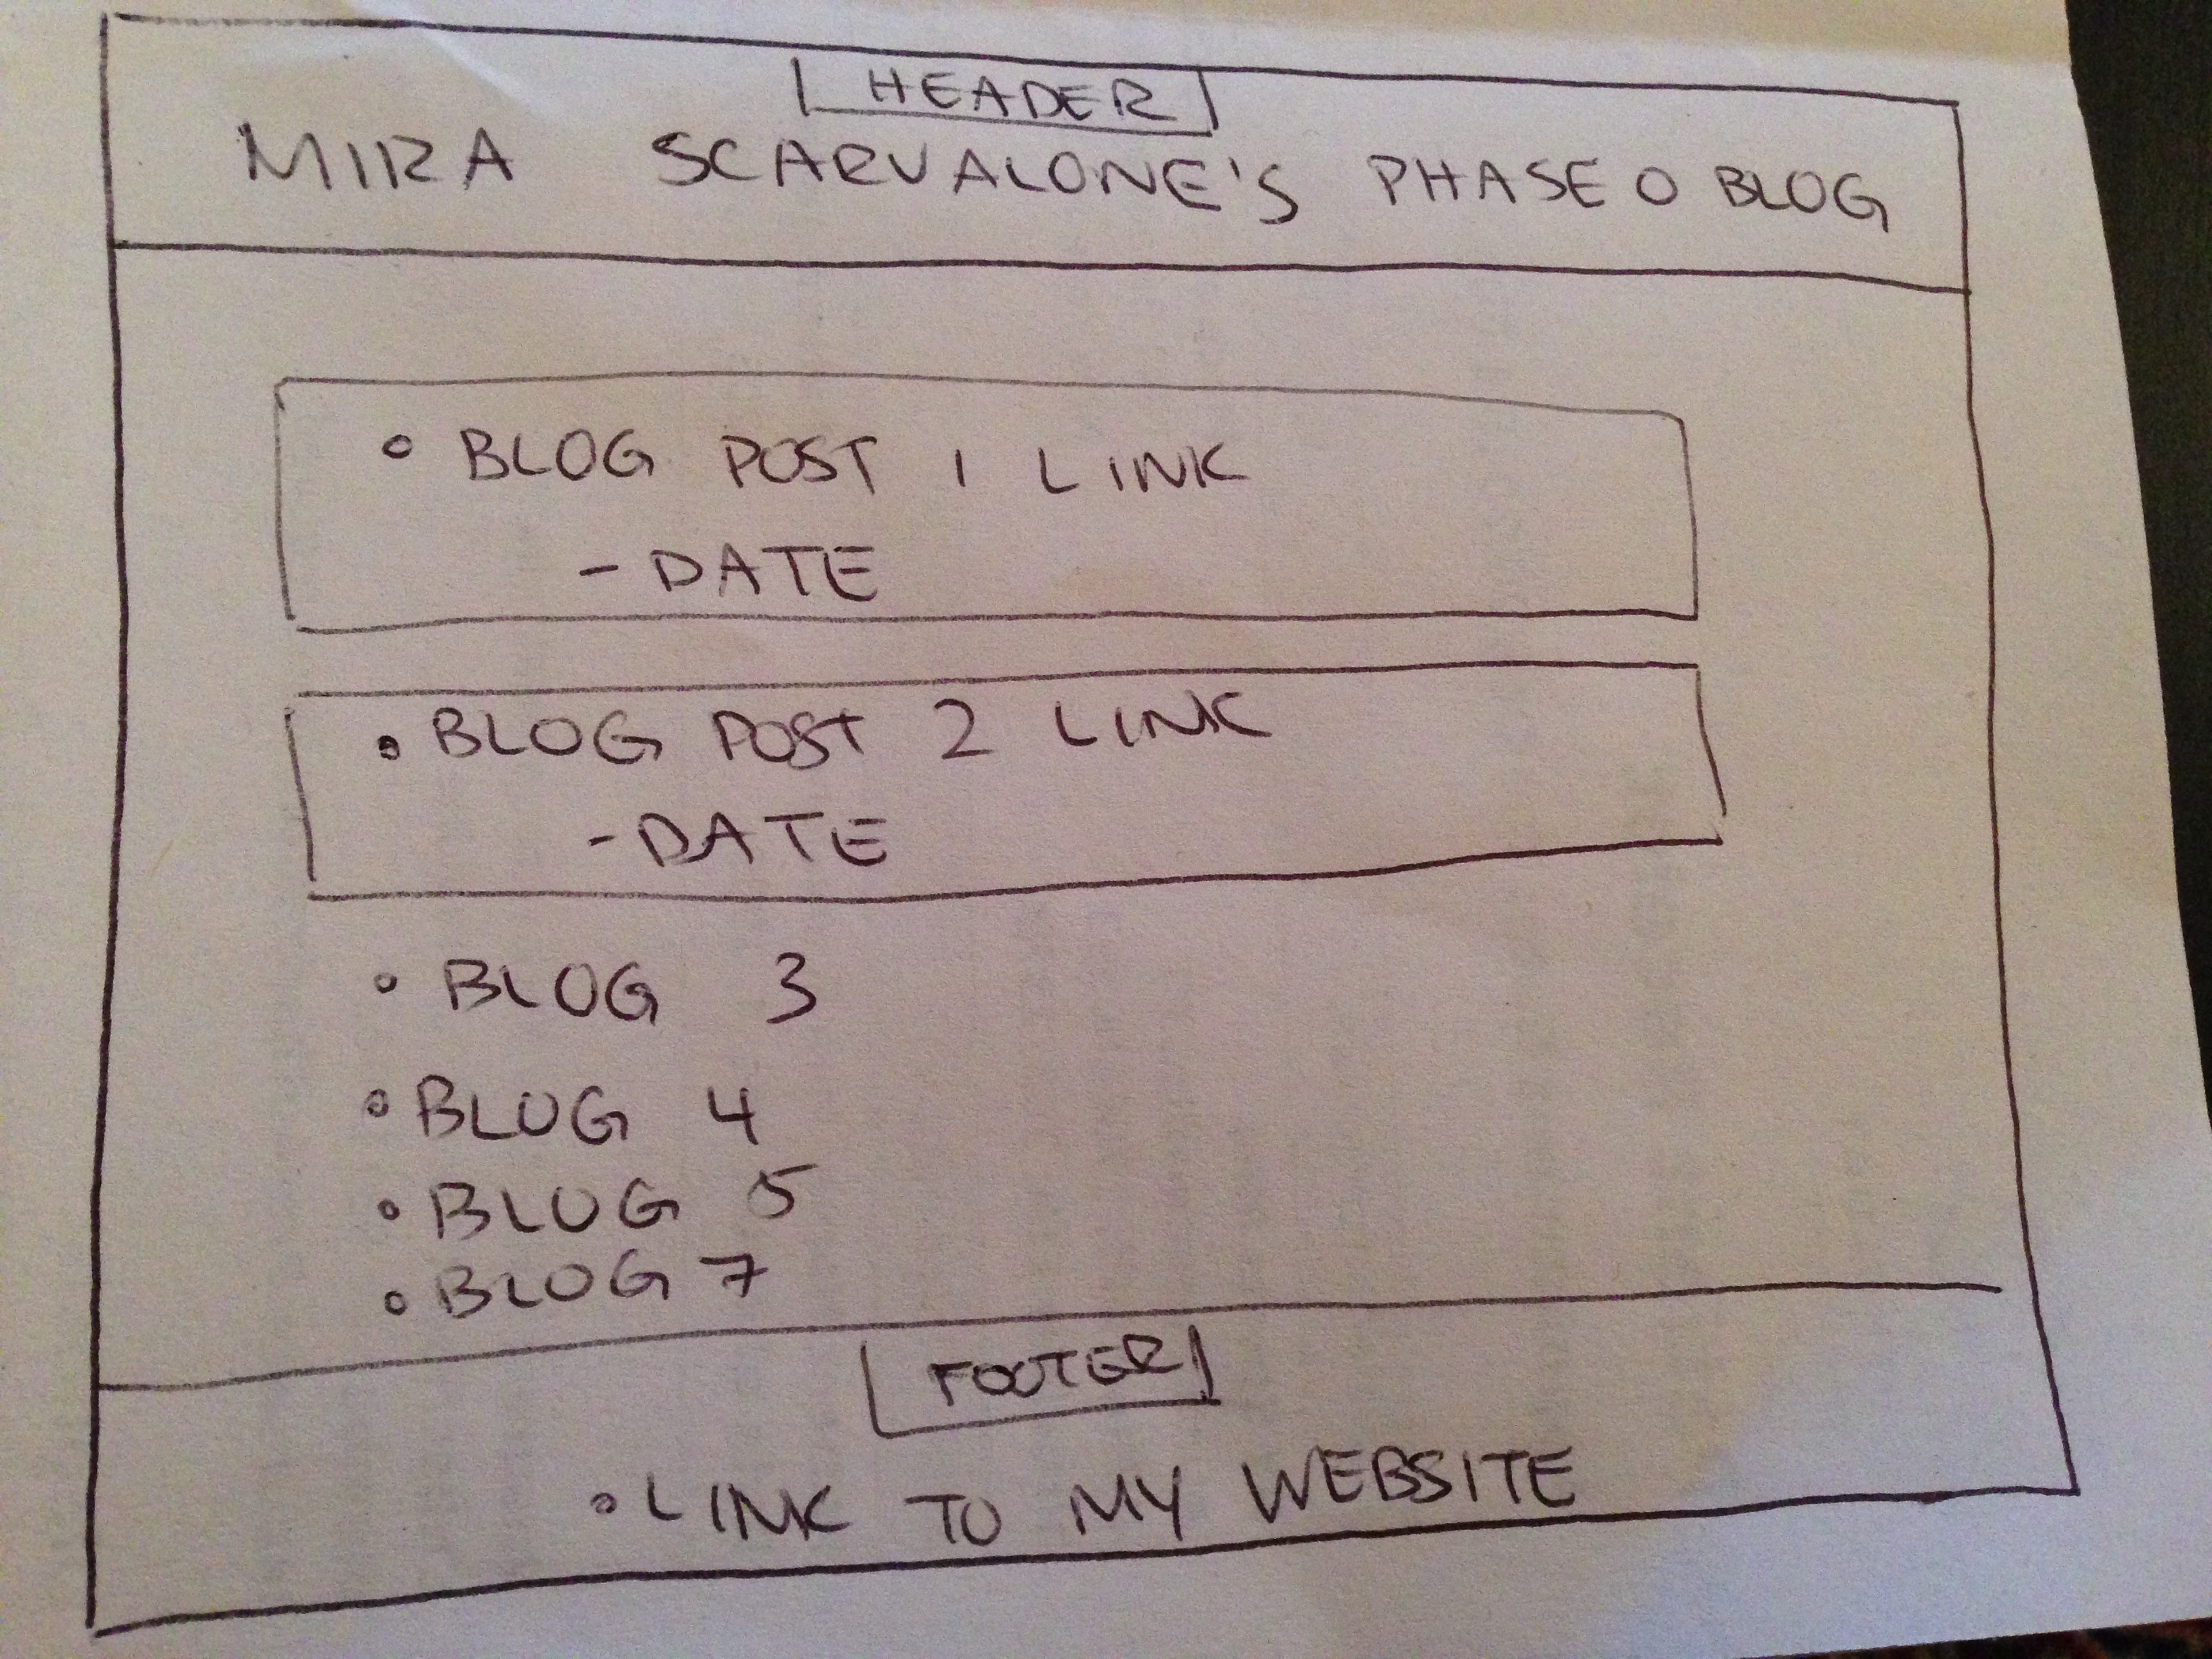 HEADER
MIRA SCARVALONE'S PHASE 0 BLOG
• BLOG POST 1 LINK
- DATE
• BLOG POST 2 LINK
- DATE
• BLOG 3
• BLOG 4
• BLOG 5
• BLOG 7
FOOTER
• LINK TO MY WEBSITE